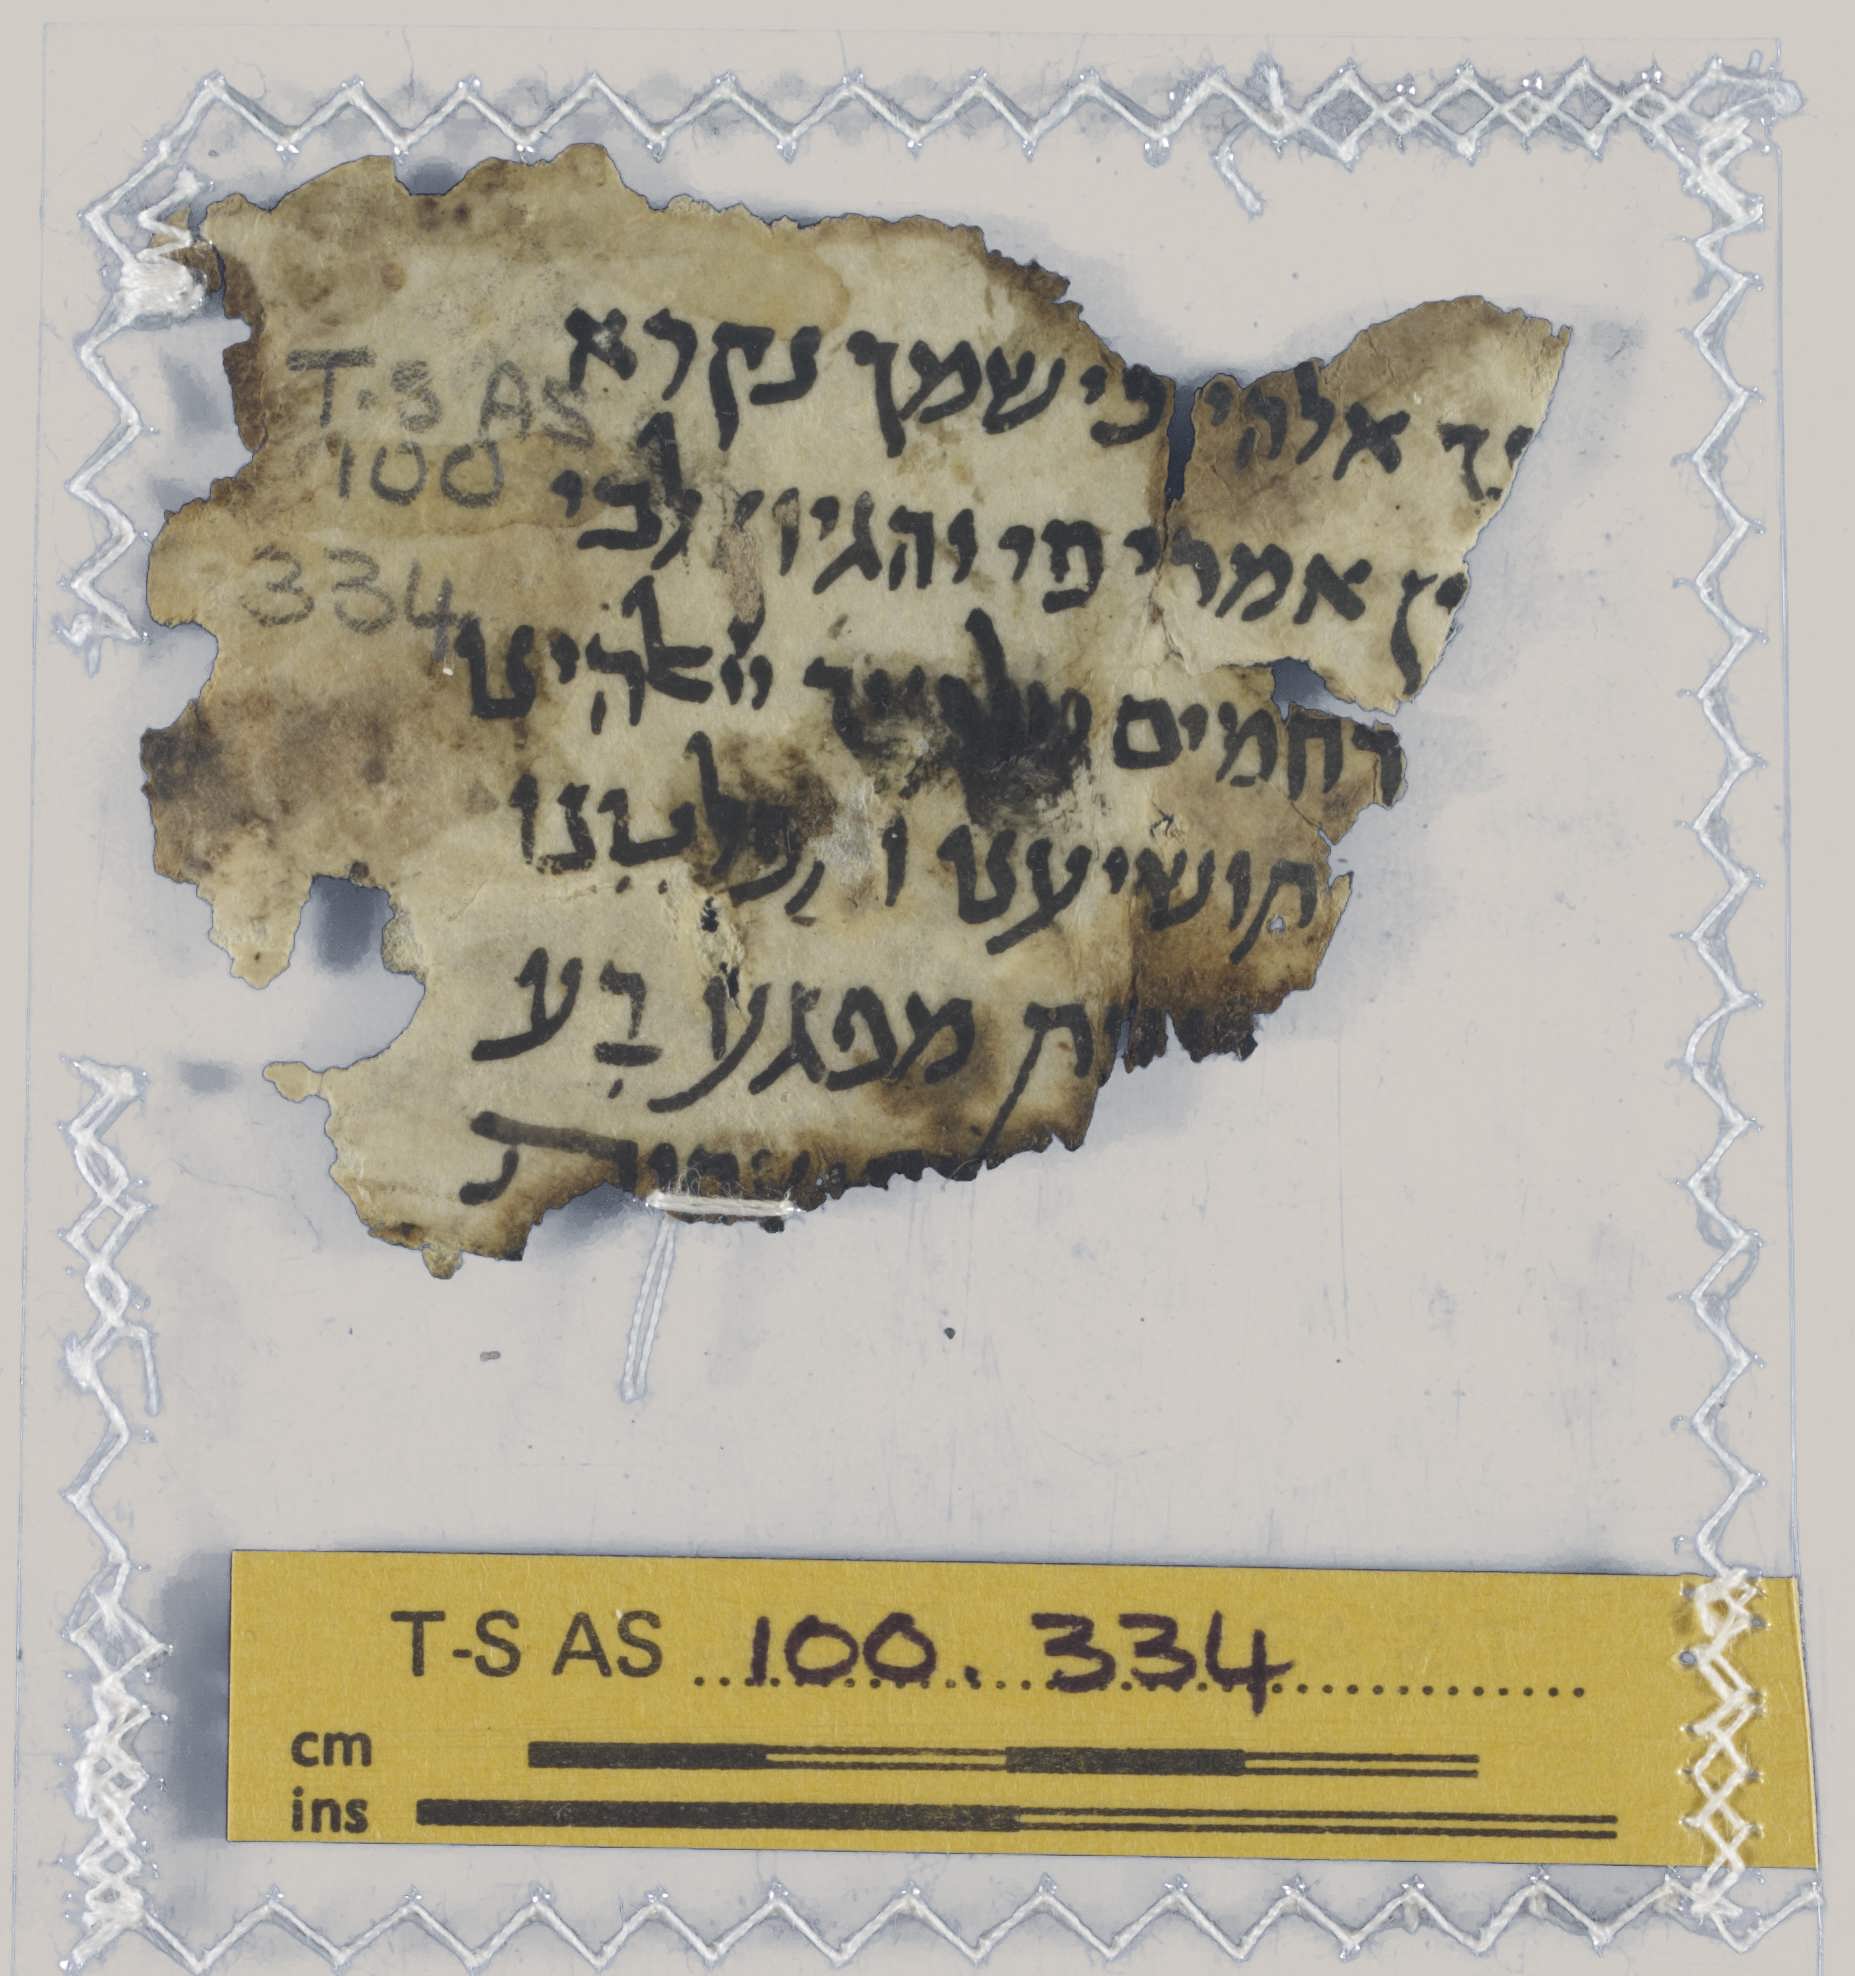 יך אלהי כי שמך נקרא
אמרי פי והגיון לבי
רחמים יי אלהינו
תושיענו ו
מפגע רע
T-S AS
100
334
T-S AS 100.334
cm
ins